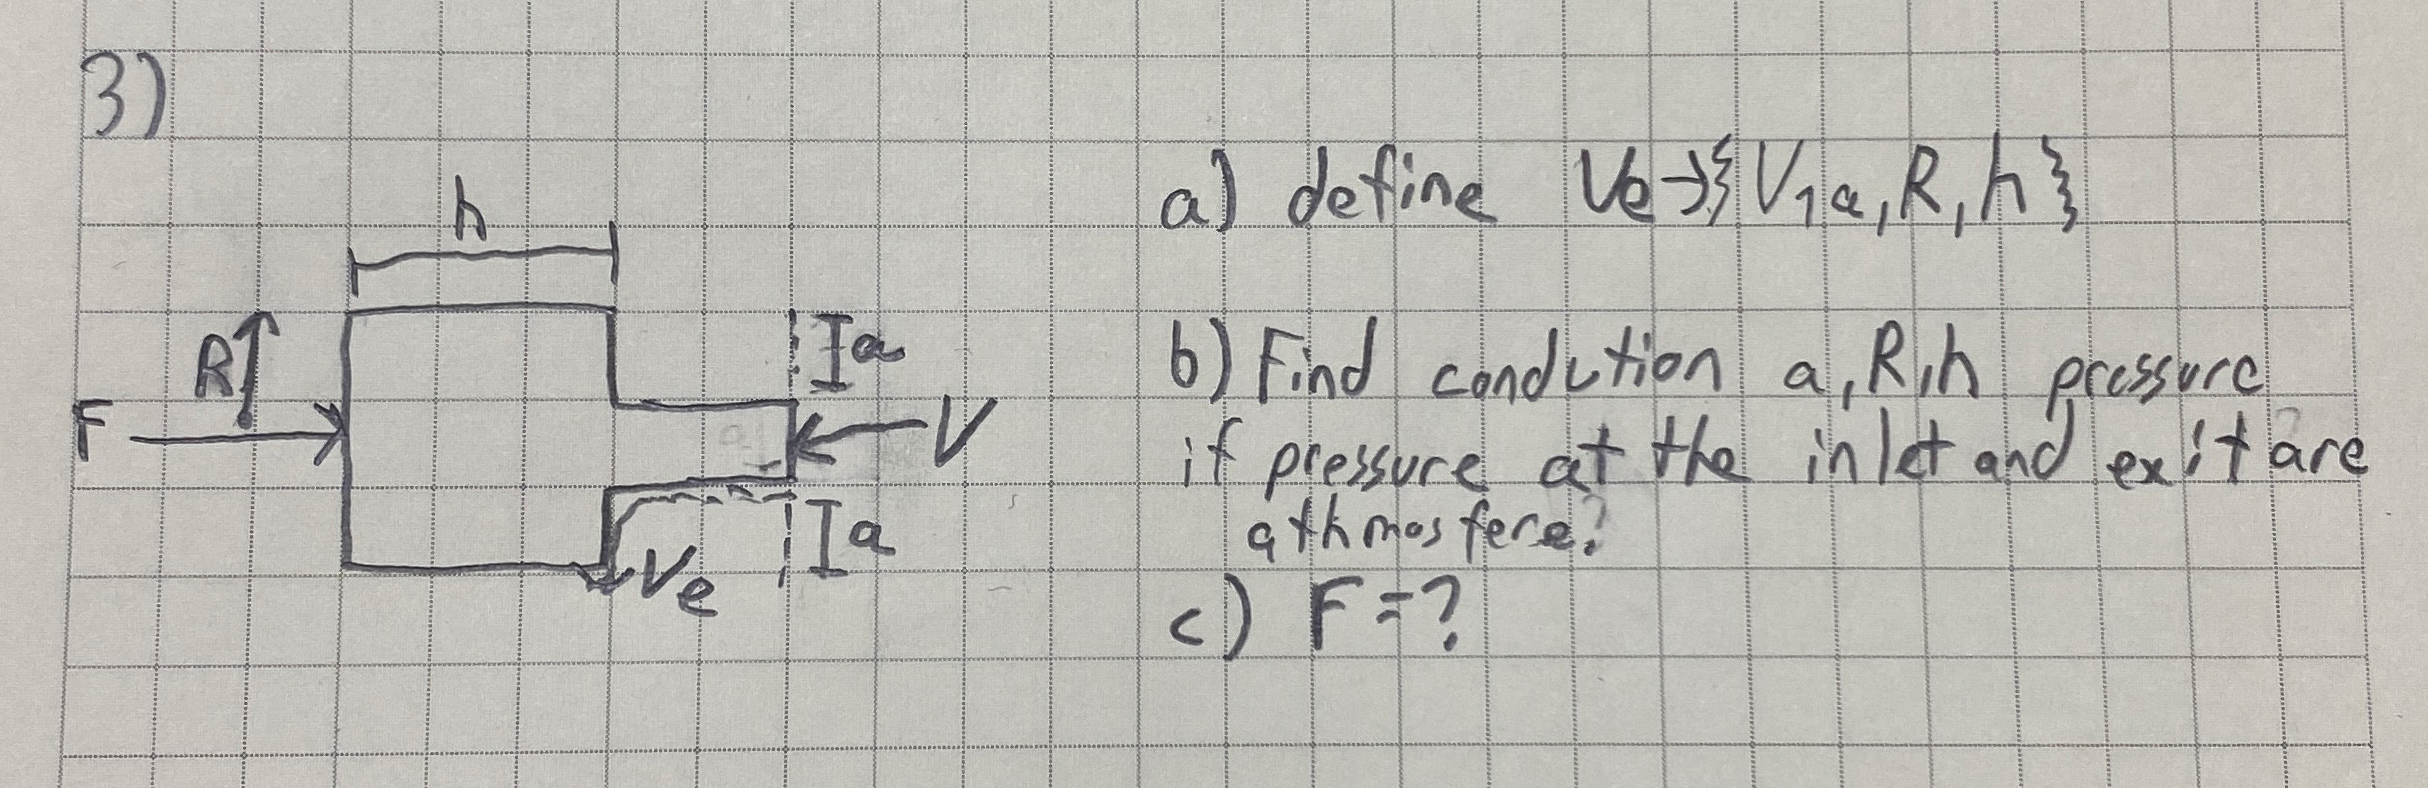 3)
a) define Ve→{V,a,R,h}
h
Ia
R
b) Find condution a,R,h pressure
F
V
if pressure at the inlet and exit are
athmosfere?
Ia
Ve
c) F=?